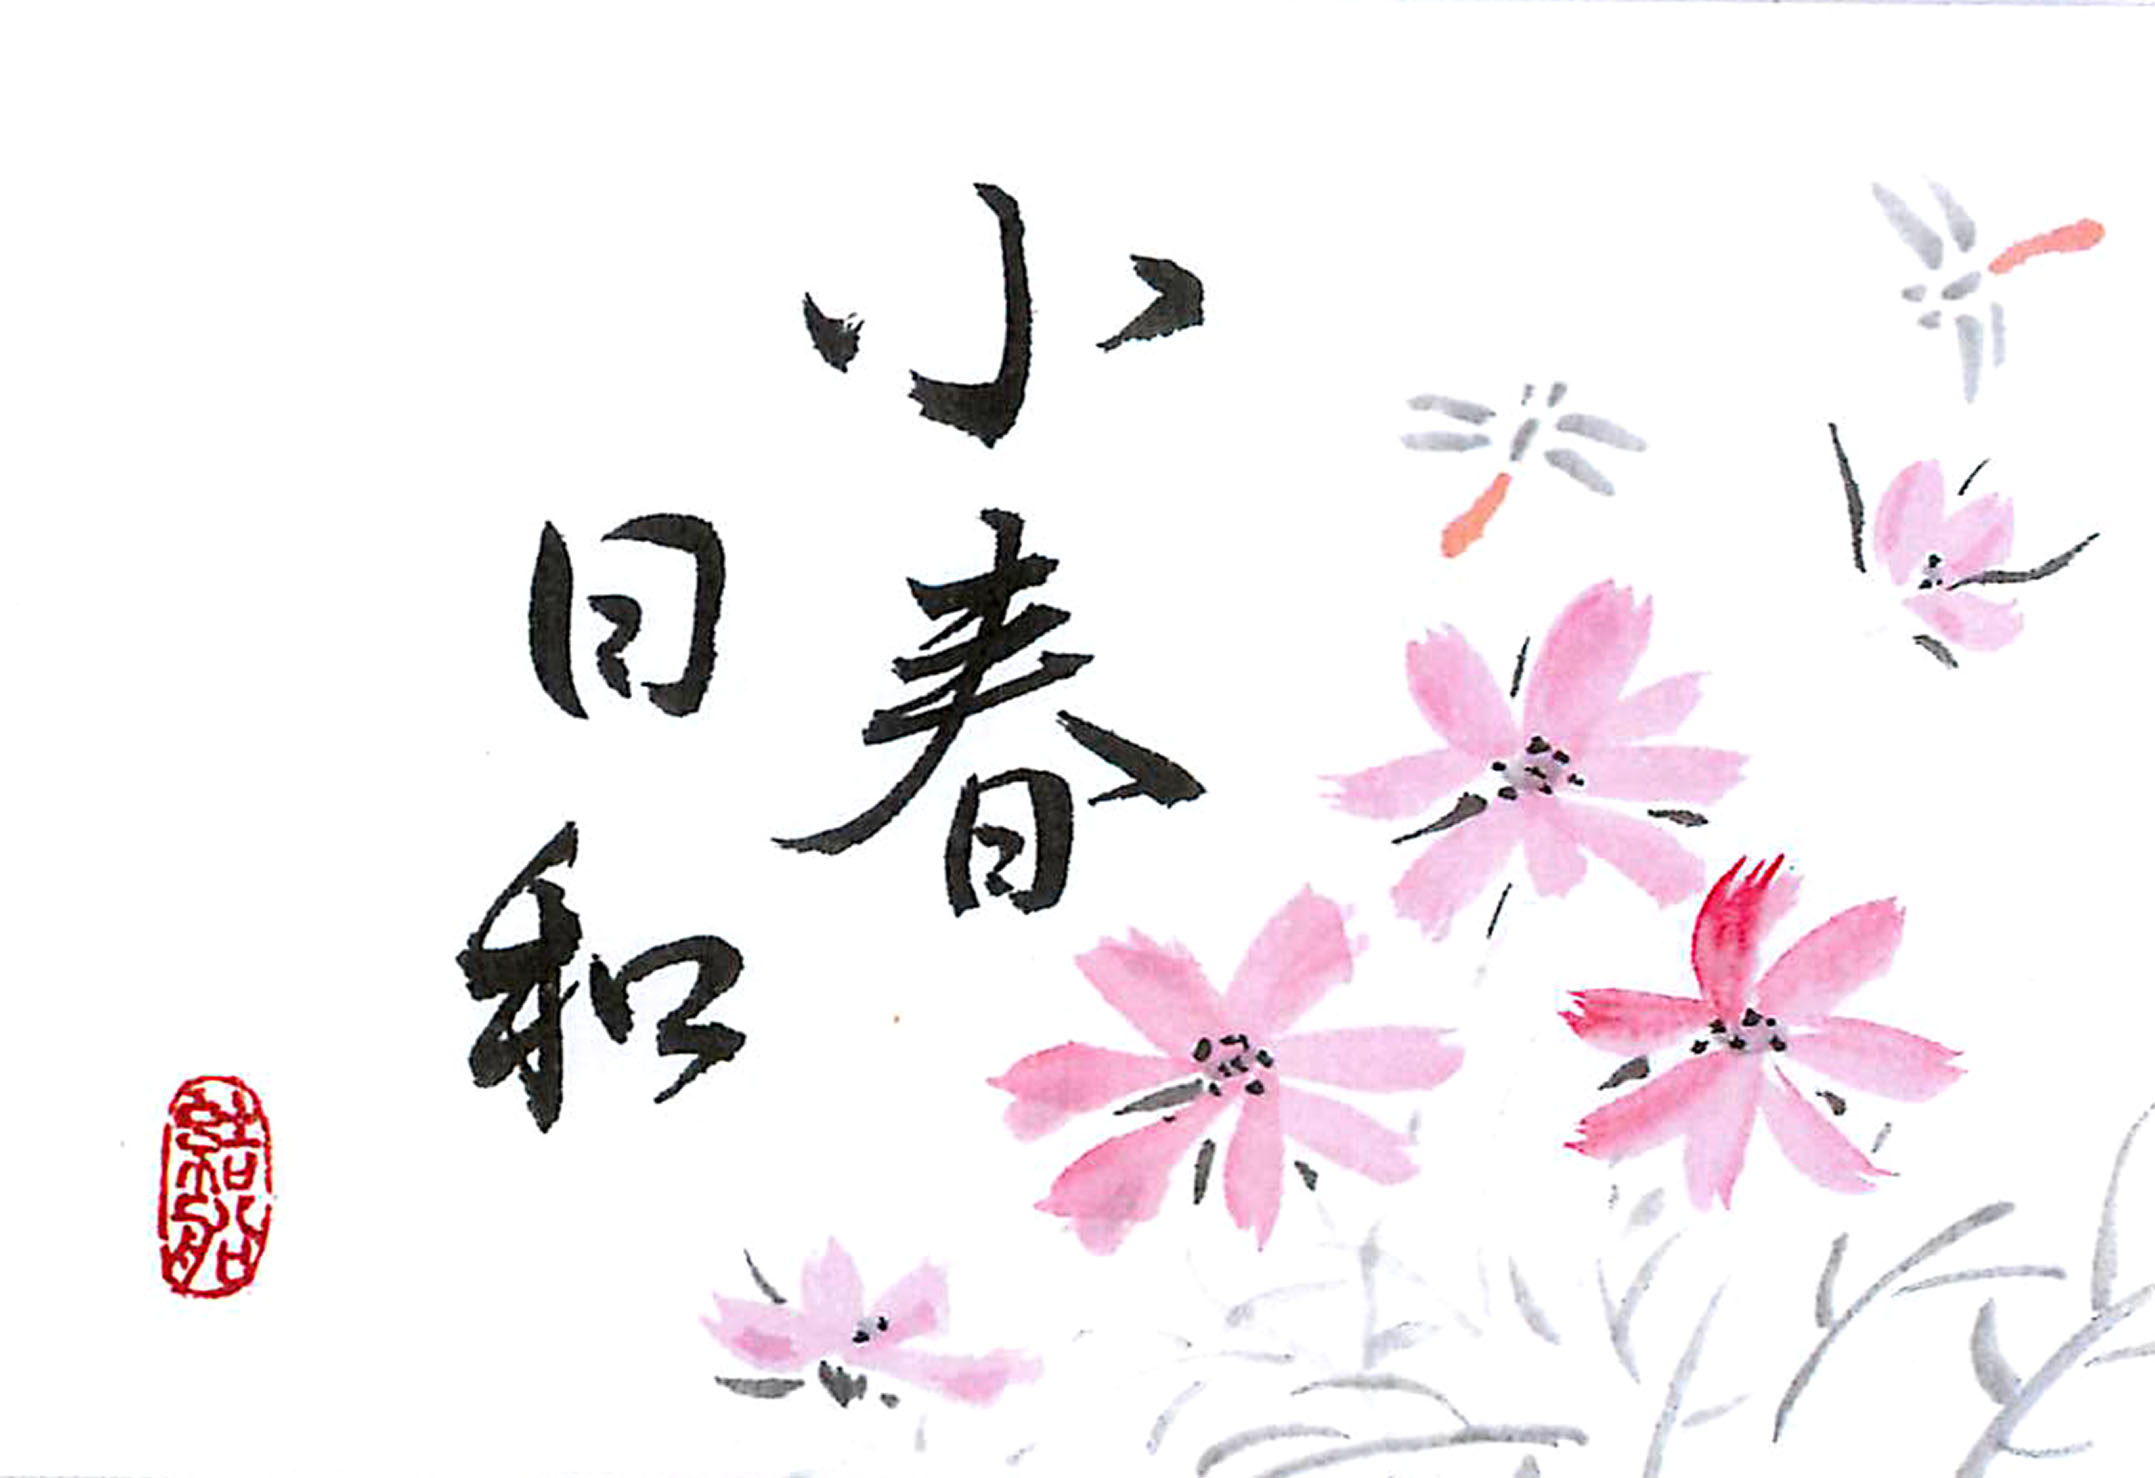 小春
日和